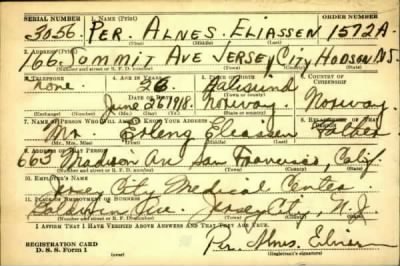 SERIAL NUMBER 1. NAME (Print) ORDER NUMBER
3056. PER. ALNES. ELIASSEN 1572A
(First) (Middle) (Last)
2. ADDRESS (Print)
166. SOMMIT AVE JERSEY CITY HUDSON N.J.
(Number and street or R. F. D. number) (Town) (County) (State)
3. TELEPHONE 4. AGE IN YEARS 5. PLACE OF BIRTH 6. COUNTRY OF CITIZENSHIP
none 26
DATE OF BIRTH
June 26 1918. Norway. Norway
7. NAME OF PERSON WHO WILL ALWAYS KNOW YOUR ADDRESS 8. RELATIONSHIP OF THAT PERSON
Mr. Erling Eliassen Father
(Mr., Mrs., Miss) (First) (Middle) (Last)
9. ADDRESS OF THAT PERSON
663 Madison Ave San Francisco, Calif.
(Number and street or R. F. D. number) (Town) (County) (State)
10. EMPLOYER'S NAME
Jersey City Medical Center
11. PLACE OF EMPLOYMENT OR BUSINESS
Baldwin Ave. Jersey City, N.J.
(Number and street or R. F. D. number) (Town) (County) (State)
I AFFIRM THAT I HAVE VERIFIED ABOVE ANSWERS AND THAT THEY ARE TRUE.
REGISTRATION CARD
D. S. S. Form 1 (Registrant's signature)